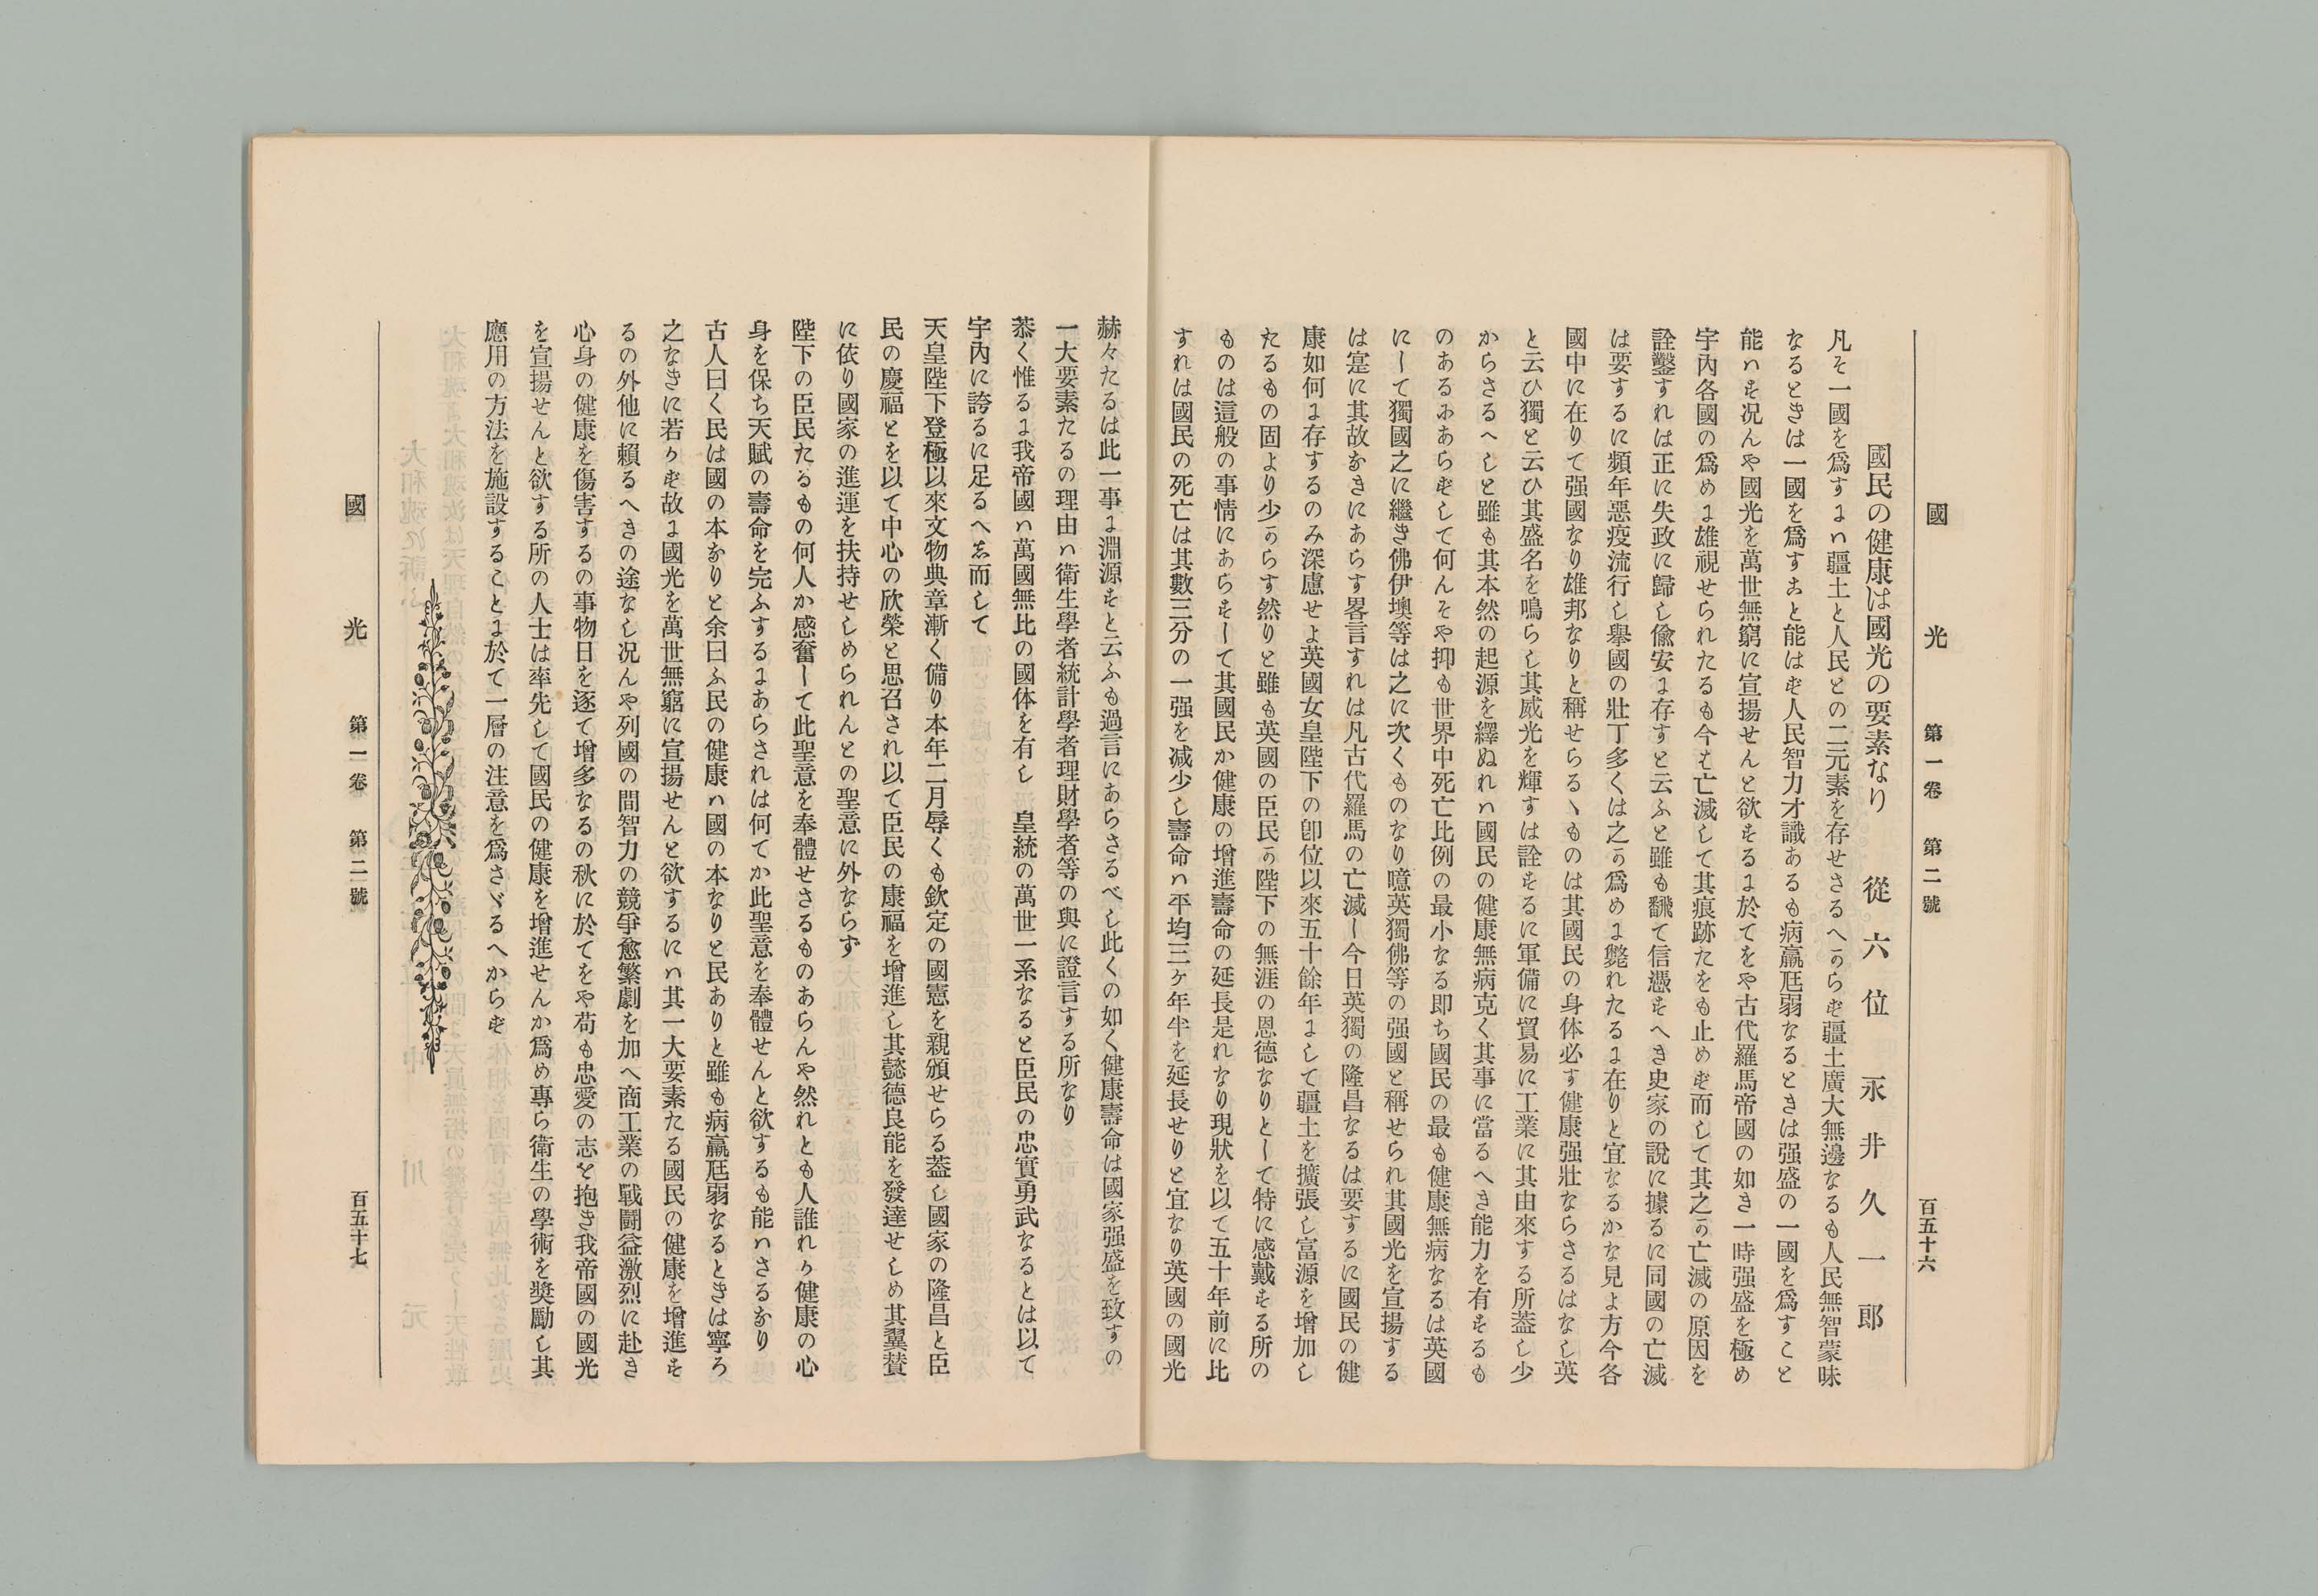 國光 第一卷 第二號 百五十六
國民の健康は國光の要素なり 從六位 永井久一郎
凡そ一國を爲すにハ疆土と人民との二元素を存せさるへからず疆土廣大無邊なるも人民無智蒙昧
なるときは一國を爲すこと能はず人民智力才識あるも病羸尫弱なるときは强盛の一國を爲すこと
能ハず况んや國光を萬世無窮に宣揚せんと欲するに於てをや古代羅馬帝國の如き一時强盛を極め
宇內各國の爲めに雄視せられたるも今は亡滅して其痕跡たをも止めず而して其之か亡滅の原因を
詮鑿すれは正に失政に歸し偸安に存すと云ふと雖も飜て信憑すへき史家の說に據るに同國の亡滅
は要するに頻年惡疫流行し擧國の壯丁多くは之か爲めに斃れたるに在りと宜なるかな見よ方今各
國中に在りて强國なり雄邦なりと稱せらるゝものは其國民の身体必す健康强壯ならさるはなし英
と云ひ獨と云ひ其盛名を鳴らし其威光を輝すは詮するに軍備に貿易に工業に其由來する所蓋し少
からさるへしと雖も其本然の起源を繹ぬれハ國民の健康無病克く其事に當るへき能力を有するも
のあるにあらずして何んそや抑も世界中死亡比例の最小なる即ち國民の最も健康無病なるは英國
にして獨國之に繼き佛伊墺等は之に次くものなり噫英獨佛等の强國と稱せられ其國光を宣揚する
は寔に其故なきにあらす畧言すれは凡古代羅馬の亡滅し今日英獨の隆昌なるは要するに國民の健
康如何に存するのみ深慮せよ英國女皇陛下の卽位以來五十餘年にして疆土を擴張し富源を增加し
たるもの固より少からす然りと雖も英國の臣民か陛下の無涯の恩德なりとして特に感戴する所の
ものは這般の事情にあらずして其國民か健康の增進壽命の延長是れなり現狀を以て五十年前に比
すれは國民の死亡は其數三分の一强を减少し壽命ハ平均三ケ年半を延長せりと宜なり英國の國光
赫々たるは此一事に淵源すと云ふも過言にあらさるべし此くの如く健康壽命は國家强盛を致すの
一大要素たるの理由ハ衞生學者統計學者理財學者等の與に證言する所なり
恭く惟るに我帝國ハ萬國無比の國体を有し 皇統の萬世一系なると臣民の忠實勇武なるとは以て
宇內に誇るに足るへし而して
天皇陛下登極以來文物典章漸く備り本年二月辱くも欽定の國憲を親頒せらる蓋し國家の隆昌と臣
民の慶福とを以て中心の欣榮と思召され以て臣民の康福を增進し其懿德良能を發達せしめ其翼賛
に依り國家の進運を扶持せしめられんとの聖意に外ならず
陛下の臣民たるもの何人か感奮して此聖意を奉體せさるものあらんや然れとも人誰れか健康の心
身を保ち天賦の壽命を完ふするにあらされは何てか此聖意を奉體せんと欲するも能ハさるなり
古人曰く民は國の本なりと余曰ふ民の健康ハ國の本なりと民ありと雖も病羸尫弱なるときは寧ろ
之なきに若かず故に國光を萬世無窮に宣揚せんと欲するにハ其一大要素たる國民の健康を增進す
るの外他に賴るへきの途なし况んや列國の間智力の競爭愈繁劇を加へ商工業の戰鬪益激烈に赴き
心身の健康を傷害するの事物日を逐て增多なるの秋に於てをや苟も忠愛の志を抱き我帝國の國光
を宣揚せんと欲する所の人士は率先して國民の健康を增進せんか爲め專ら衞生の學術を奬勵し其
應用の方法を施設することに於て一層の注意を爲さゞるへからず
國光 第一卷 第二號 百五十七